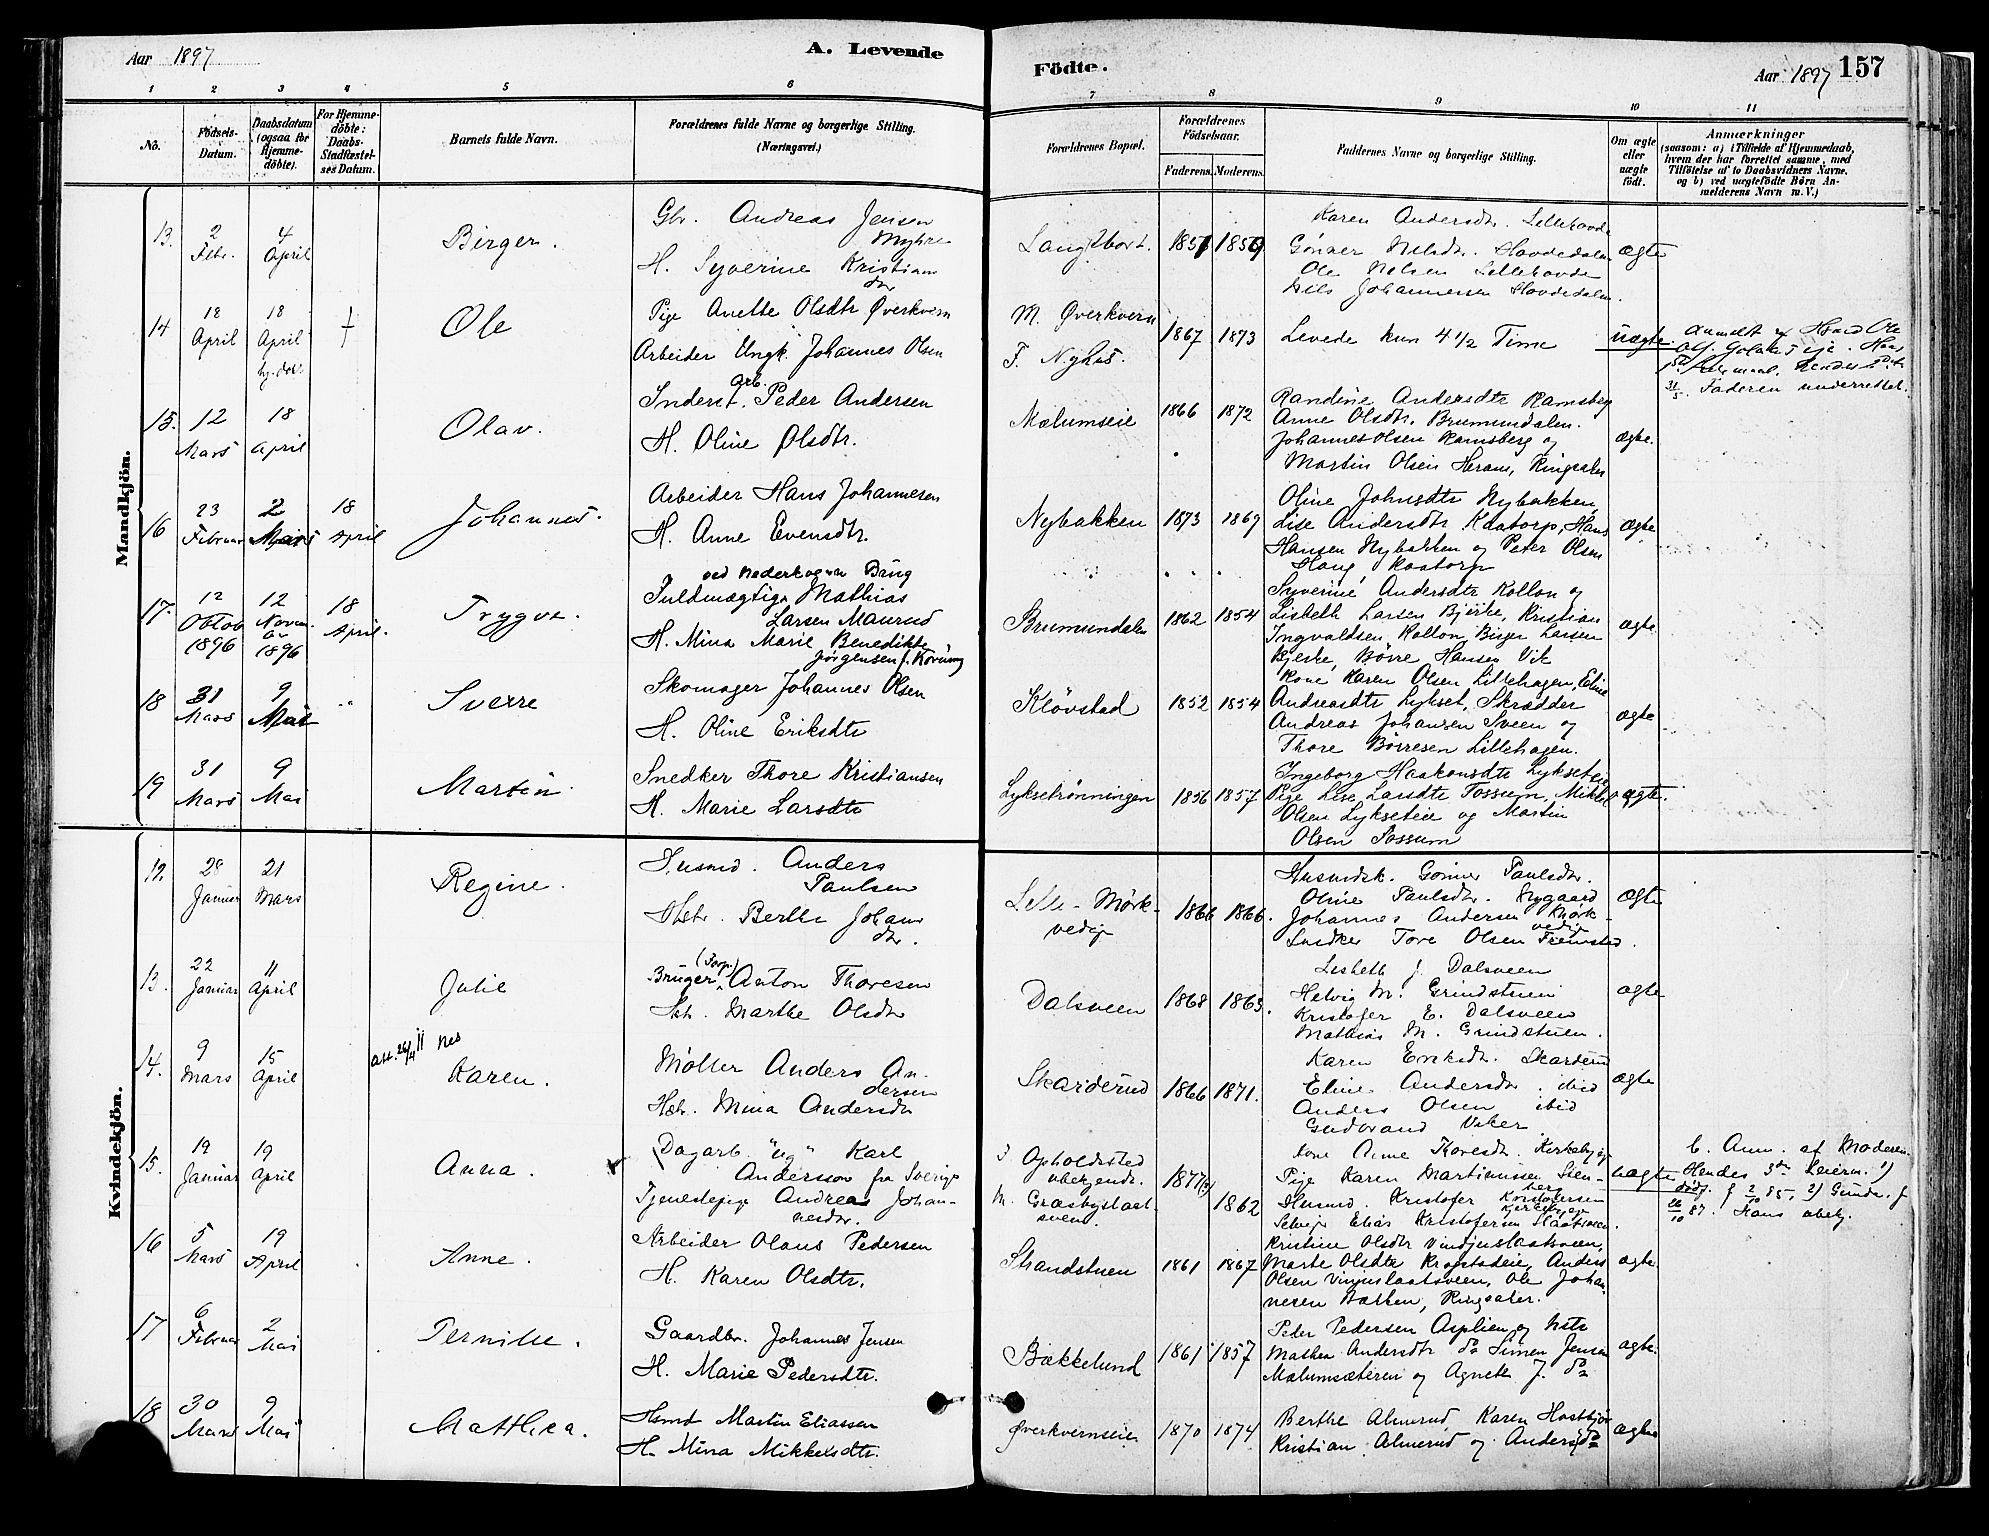 Aar 1897
A. Levende
Födte.
Aar 1897
157
1 2 3 4 5 6 7 8 9 10 11
No.
Fødsels-
Datum.
Daabsdatum
(ogsaa for
Hjemme-
döbte).
For Hjemme-
döbte:
Daabs-
Stadfæstel-
ses Datum.
Barnets fulde Navn.
Forældrenes fulde Navne og borgerlige Stilling.
(Næringsvei.)
Forældrenes Bopæl.
Forældrenes
Födselsaar.
Faderens. Moderens.
Faddernes Navne og borgerlige Stilling.
Om ægte
eller
uægte
födt.
Anmærkninger
(saasom: a) i Tilfælde af Hjemmedaab,
hvem der har forrettet samme, med
Tilföielse af to Daabsvidners Navne.
og b) ved uægtefödte Børn An-
melderens Navn m. V.)
Mandkjön.
13. 2 Febr. 4 April
Birger.
Gbr. Andreas Jensen
Myhre
H. Syverine Kristians
dtr
1859
Karen Andersdtr. Lillehovde
Gönner Nilsdtr. Hovdedalen
Ole Nelsen Lillehovde
Nils Johannesen Hovdedalen.
ægte
14 18 April 18 April
Ole
Pige Anette Olsdtr Øverkvern
Arbeider Ungk. Johannes Olsen
M. Øverkvern
F. Nyhus.
1867 1873
Levede kun 4 1/2 Time
uægte.
Faderen underrettet.
15. 12 Mars 18 April
Olav.
Inderst. arb. Peder Andersen
H. Oline Olsdtr.
Mælumseie
1866 1872
Randine Andersdtr Ramsberg
Anne Olsdtr. Brumundalen.
Johannes Olsen Ramsberg og
Martin Olsen Heram, Ringsaker
ægte.
16 23 Februar 2 Mars 18 April
Johannes.
Arbeider Hans Johannesen
H. Anne Evensdtr.
Nybakken
1873 1869
Oline Johnsdtr Nybakken,
Lise Andersdtr Kaatorp, Hans
Hansen Nybakken og Peter Olsen
Haug Kaatorp
ægte
17. 12 Oktob 1896 12 Novem 1896 18 April.
Trygve.
Fuldmægtige Mathias
Larsen Maurud
H. Mina Marie Benedikte
Jörgensen f. Körung
Brumundalen
1862 1854
Syverine Andersdtr Kollon og
Lisbeth Larsen Bjerke, Kristian
Ingvaldsen Kollon, Birger Larsen
Bjerke, Börre Hansen Vik
ægte
18 31 Mars 9 Mai
Sverre
Skomager Johannes Olsen
H. Oline Eriksdtr
Klövstad
1852 1854
Kone Karen Olsen Lillehagen, Eline
Andreasdtr Lykset, Skrædder
Andreas Johansen Sveen og
Thore Börresen Lillehagen.
ægte
19 31 Mars 9 Mai
Martin
Snedker Thore Kristiansen
H. Marie Larsdtr
Lyksetrönningen
1856 1857
Ingeborg Haakonsdtr Lykseteie
Pige Lise Larsdtr Fossum, Mikkel
Olsen Lykseteie og Martin
Olsen Fossum
ægte.
Kvindekjön.
12. 28 Januar 21 Mars
Regine.
Husmd. Anders
Paulsen
Hstr. Berthe Johans
dtr.
Lille-Mörk-
vedeje
1866 1866.
Husmdsk. Gönner Paulsdtr.
Oline Paulsdtr. Nygaard
Johannes Andersen Mörk-
vedeje
Snedker Tore Olsen Fremstad.
ægte
13. 22 Januar 11 April
Julie
Bruger (Forp.) Anton Thoresen
Hst. Marthe Olsdtr
Dalsveen
1868 1863.
Lisbeth J. Dalsveen
Helvig M. Grindstuen
Kristofer E. Dalsveen
Mathias M. Grindstuen.
ægte
14. 9 Mars 15 April
Att. 26/4 11 Nes
Karen.
Möller Anders An-
dersen
Hstr. Mina Andersdtr
Skarderud
1866 1871.
Karen Eriksdtr. Skarderud
Eline Andersdtr. ibid
Anders Olsen ibid
Gudbrand Viker
ægte
15. 19 Januar 19 April
Anna.
Dagarb. "Ug" Karl
Andersson fra Sverige
Tjenestepige Andrea Johan-
nesdtr.
F. Opholdssted
ubekjendt.
1877(?) 1862
Kone Anne Toresdtr. Kirkebyeje
Pige Karen Martinussen Sten-
berg
Husmd. Kristofer Kristofersen
Kirkebyeje
Selvejer Elias Kristofersen
uægte
C. Anm. af Moderen.
Hendes 3die Leierm. 1)
16 5 Mars 19 April
Anne.
Arbeider Olaus Pedersen
H. Karen Olsdtr.
Strandstuen
1861 1867
Kristine Olsdtr Vinjuslaatsveen,
Marte Olsdtr Krogstadeie, Anders
Olsen Vinjuslaatsveen, Ole Johan-
nesen Bakken, Ringsaker.
ægte.
17 6 Februar 2 Mai
Pernille.
Gaardbr. Johannes Jensen
H. Marie Pedersdtr.
Bækkelund
1861 1857
Peder Pedersen Asplien og Hstr
Mathea Andersdtr do Simen Jensen
Mælumsæteren og Agnete J. do
ægte.
18 30 Mars 9 Mai
Mathea.
Hsmd Martin Eliassen
H. Mina Mikkelsdtr.
Øverkvernseie
1870 1874
Berthe Almerud Karen Hostbjör
Kristian Almerud og Anders do
ægte